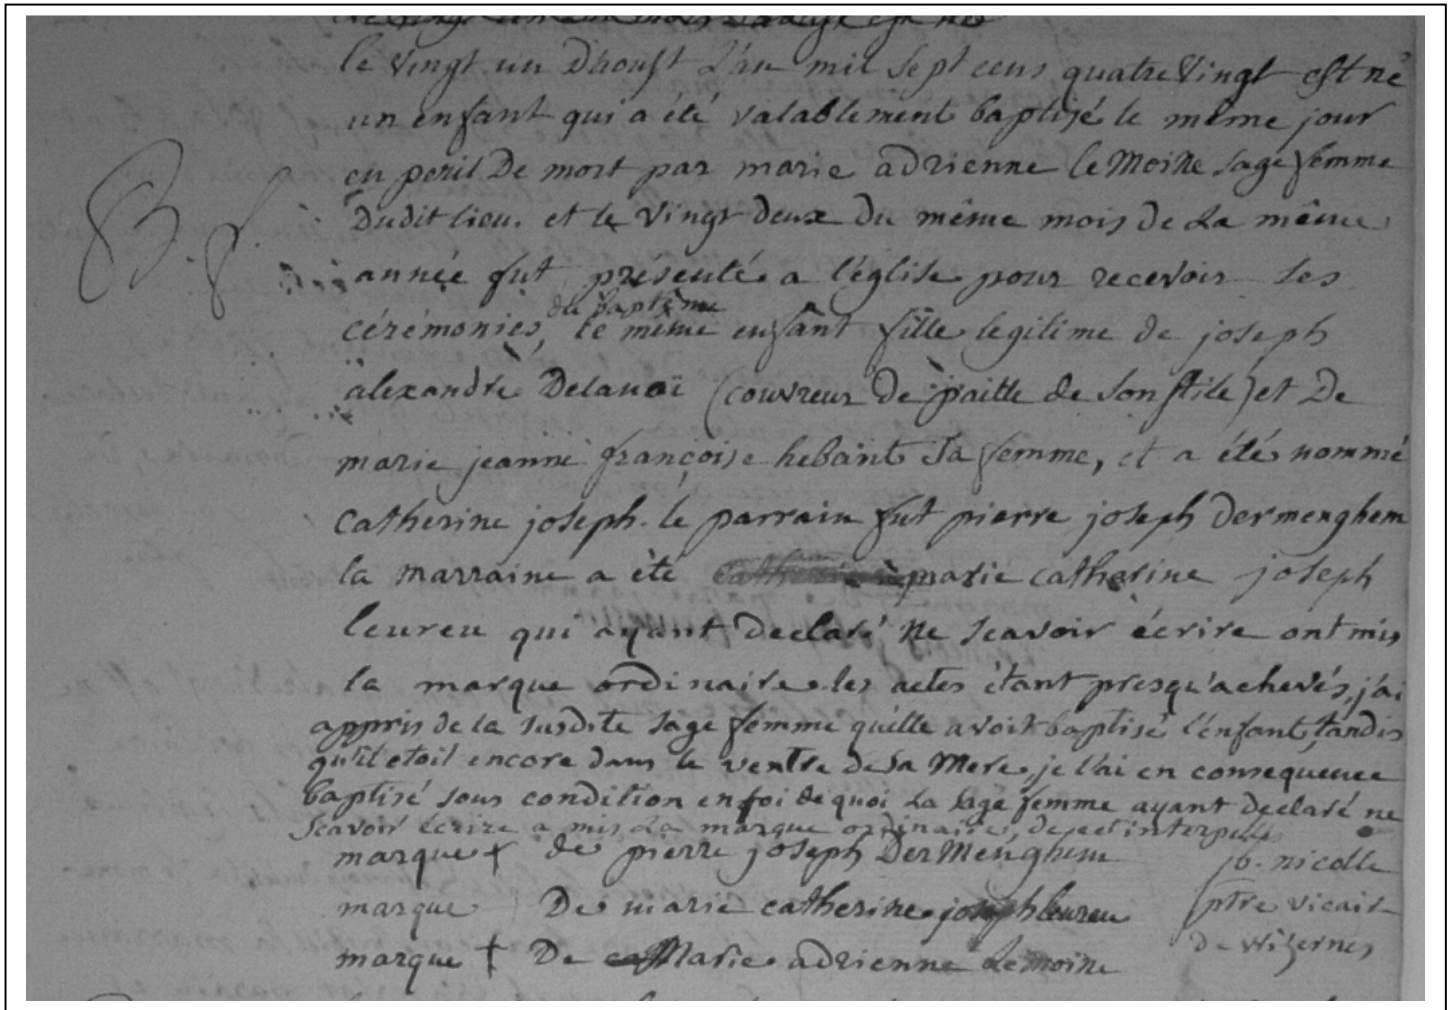 le vingt un Daoust L'an mil sept cens quatre Vingt est né
un enfant qui a été valablement baptisé le même jour
en peril De mort par marie adrienne le Moine sage femme
Dudit lieu. et le Vingt deux Du même mois de La même
B. f.
année fut presenté a l'église pour recevoir les
du baptême
cérémonies, le même enfant fille legitime de joseph
alexandre Delanoï (couvreur De paille de son stile) et De
marie jeanne françoise hebant sa femme, et a été nommé
catherine joseph. le parrain fut pierre joseph Dermenghem
la marraine a été marie catherine joseph
leureu qui ayant declaré ne scavoir écrire ont mis
la marque ordinaire. les actes étant presqu'achevés, j'ai
appris de la susdite sage femme qu'elle avoit baptisé l'enfant, tandis
qu'il etoit encore dans le ventre de sa Mere, je l'ai en consequence
baptisé sous condition en foi de quoi La sage femme ayant declaré ne
scavoir écrire a mis La marque ordinaire, de ce
marque + de pierre joseph DerMenghem
jb. nicolle
marque De marie catherine joseph leureu
ptre vicair
marque + De Marie adrienne Lemoine
de wizernes